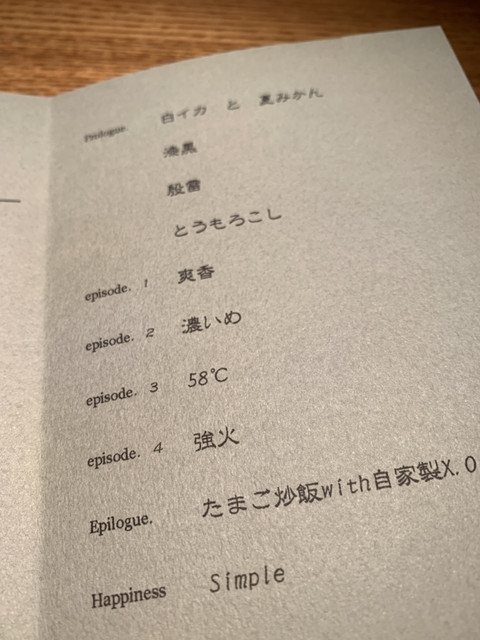 Prologue. 白イカ と 夏みかん
漆黒
殷雷
とうもろこし
episode. 1 爽香
episode. 2 濃いめ
episode. 3 58℃
episode. 4 強火
Epilogue. たまご炒飯with自家製X.O
Happiness Simple